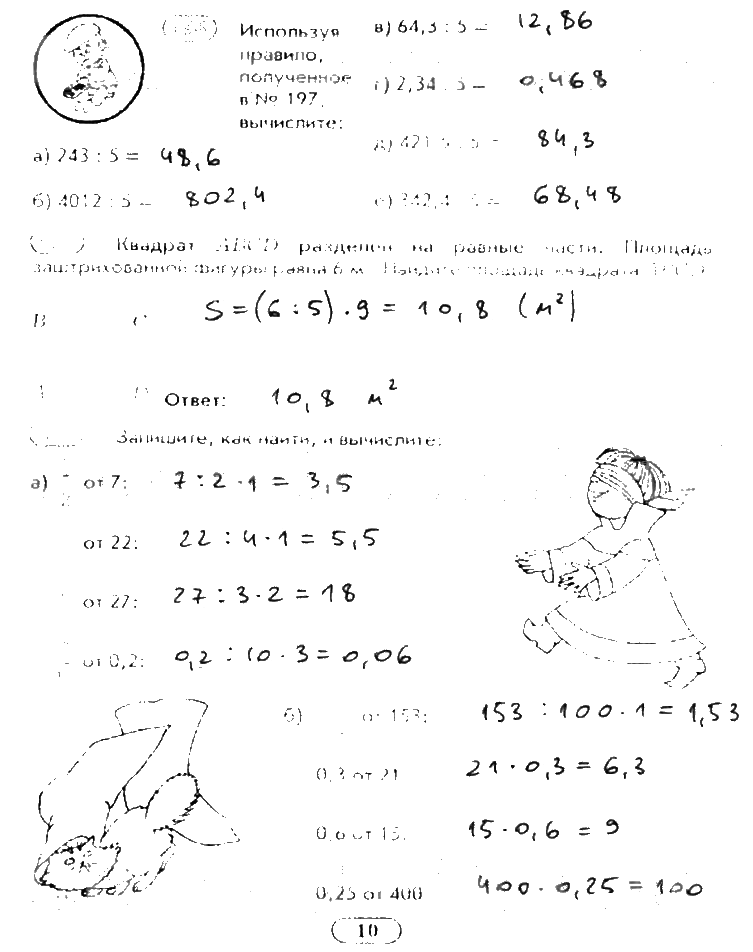 Используя правило, полученное в № 197, вычислите:
а) 243 : 5 = 48,6
б) 4012 : 5 = 802,4
в) 64,3 : 5 = 12,86
г) 2,34 : 5 = 0,468
д) 421,5 : 5 = 84,3
е) 342,4 : 5 = 68,48
Квадрат ABCD разделен на равные части. Площадь
заштрихованной фигуры равна 6 м². Найдите площадь квадрата ABCD.
B C S = (6 : 5) · 9 = 10,8 (м²)
A D Ответ: 10,8 м²
Запишите, как найти, и вычислите:
а) от 7: 7 : 2 · 1 = 3,5
от 22: 22 : 4 · 1 = 5,5
от 27: 27 : 3 · 2 = 18
от 0,2: 0,2 : 10 · 3 = 0,06
б) от 153: 153 : 100 · 1 = 1,53
0,3 от 21 21 · 0,3 = 6,3
0,6 от 15: 15 · 0,6 = 9
0,25 от 400 400 · 0,25 = 100
10